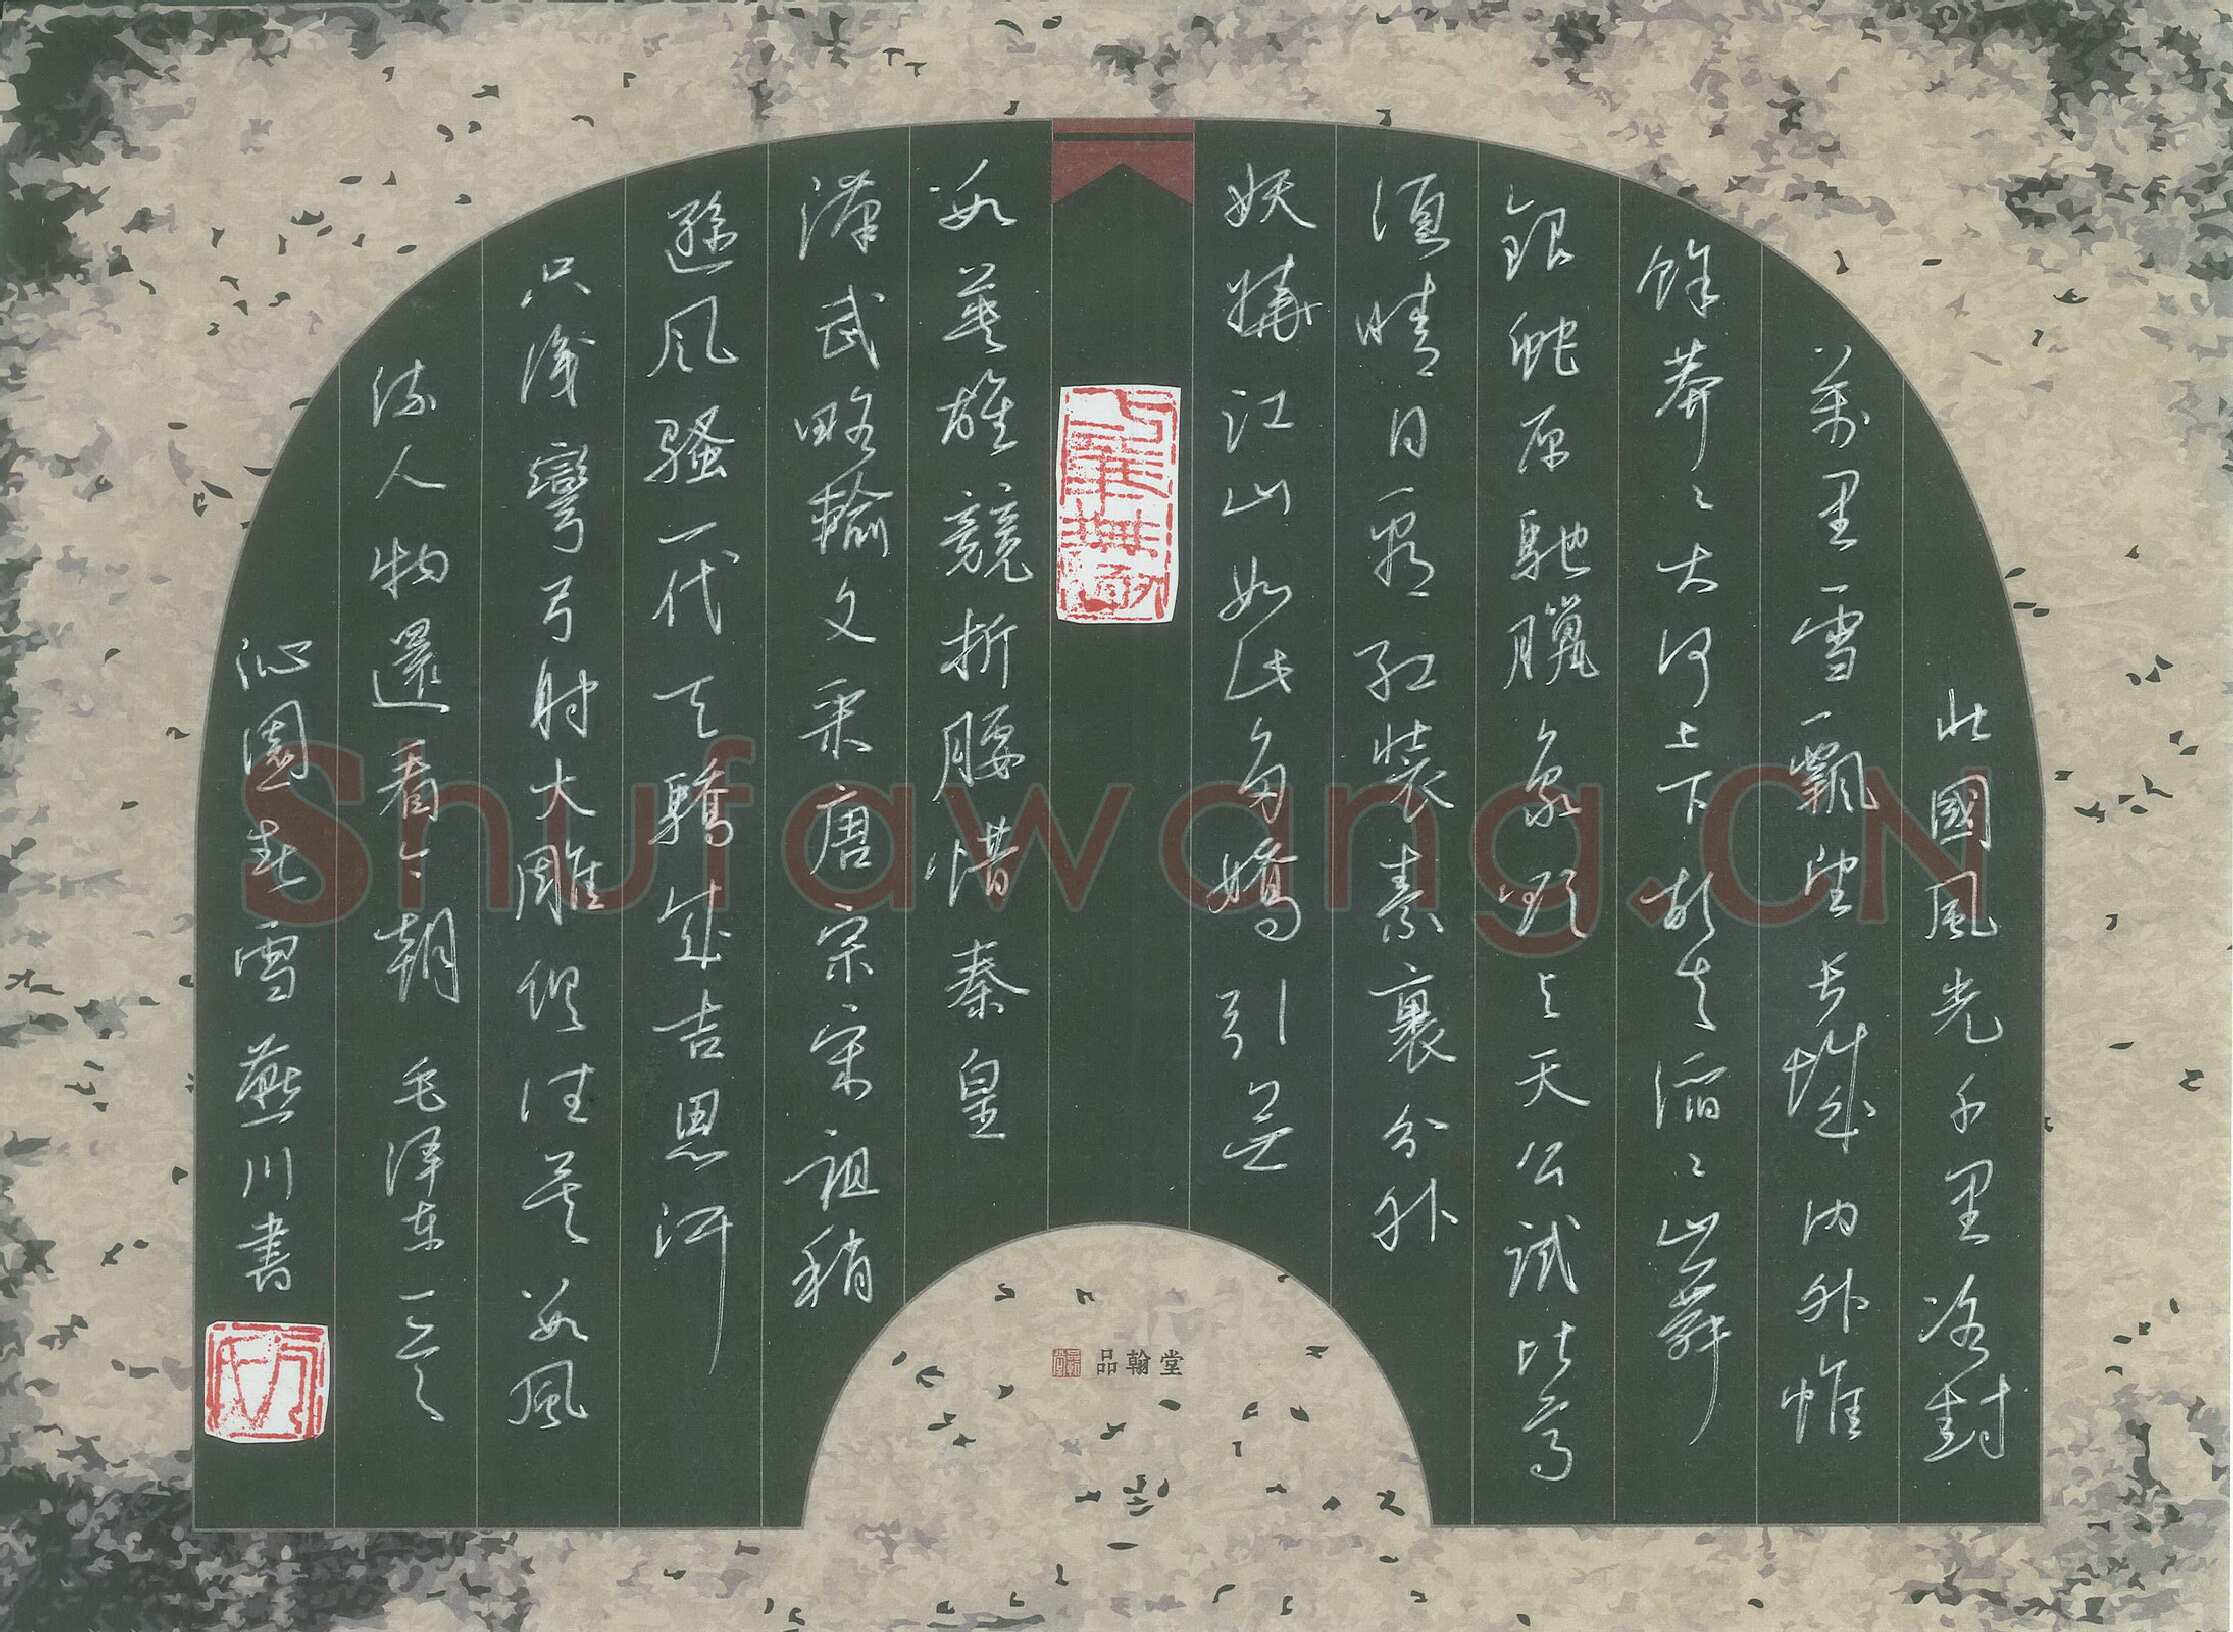 北國風光千里冰封
萬里雪飄望長城內外惟
餘莽〻大河上下頓失滔〻山舞
銀蛇原馳臘象欲與天公試比高
須晴日看紅裝素裹分外
妖嬈江山如此多嬌引無
數英雄競折腰惜秦皇
漢武略輸文采唐宗宋祖稍
遜風騷一代天驕成吉思汗
只識彎弓射大雕俱往矣數風
流人物還看今朝 毛澤東
沁園春雪燕川書
品翰堂
Shufawang.CN